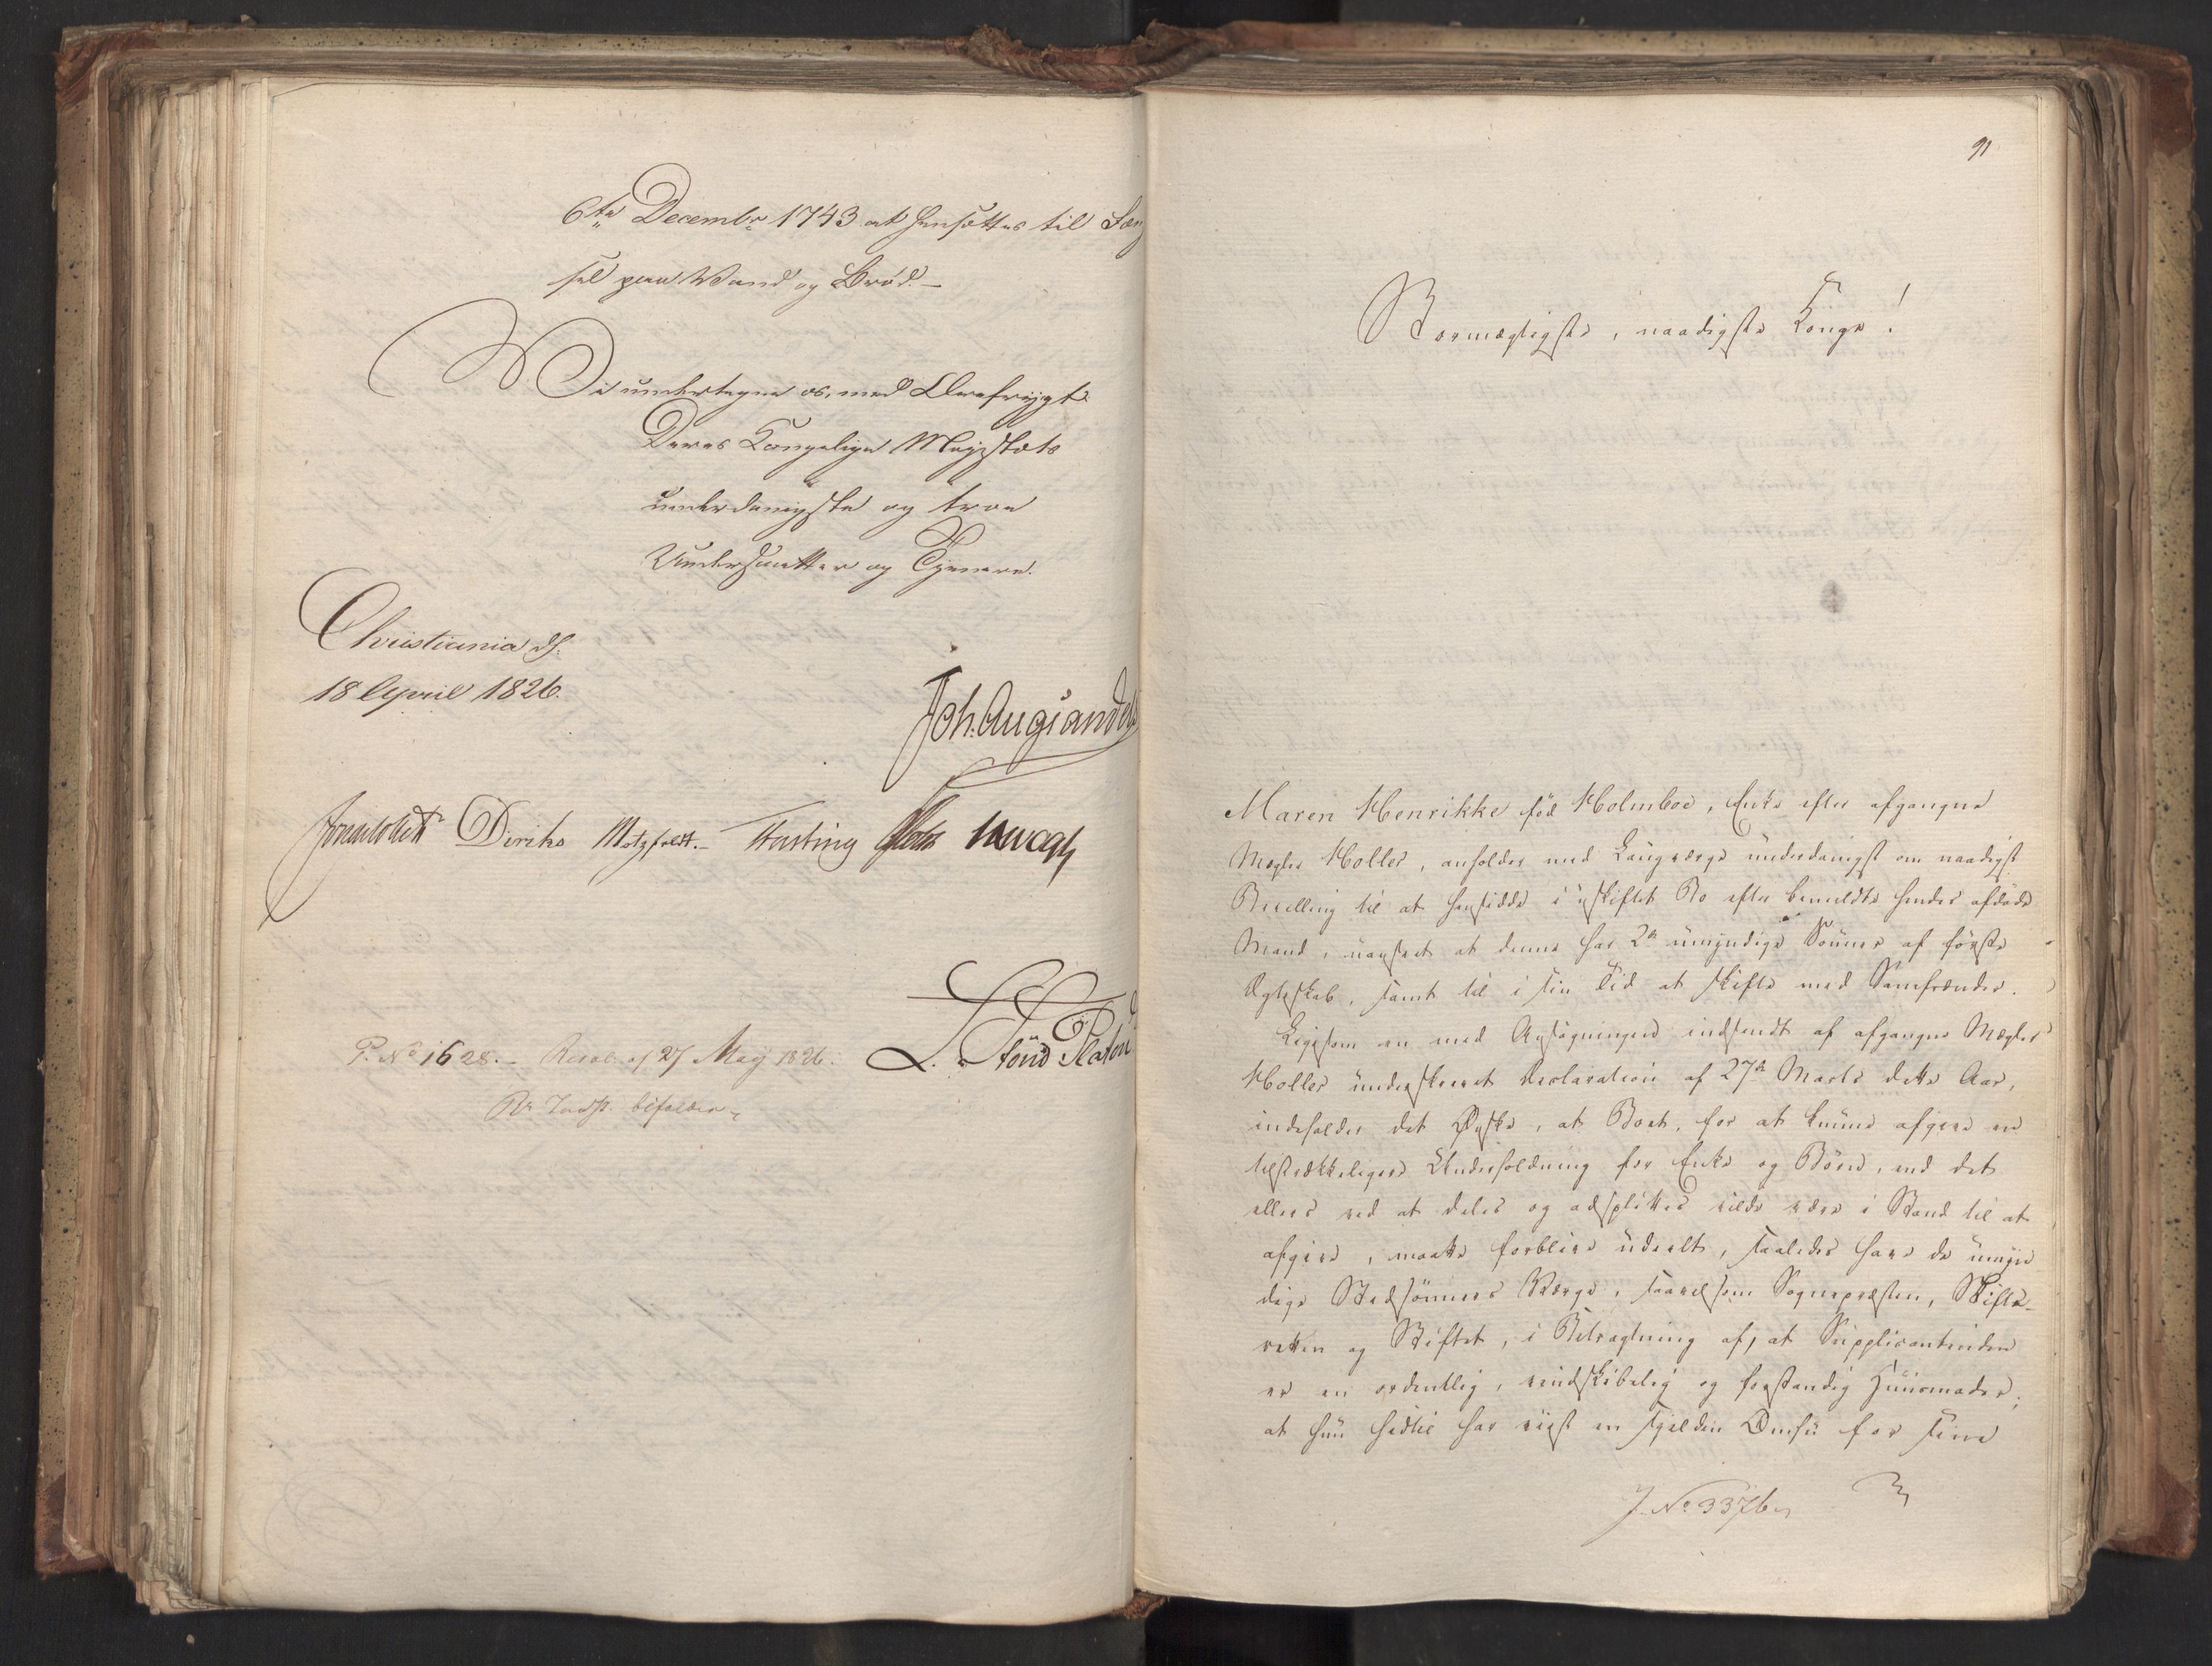 6te Decembr 1743 at hensættes til Fæng
sel paa Vand og Brød.
Vi undertegne os, med Ærefrygt
Deres Kongelige Majestæts
underdanigste og troe
Undersaatter og Tjenere.
Christiania d.
18 April 1826.
Joh. Aug. Sandels
Diriks Motzfeldt. Fasting
P. No 1628. Resol. af 27 May 1826.
Rs Indst. bifaldes
91
Stormægtigste, naadigste Konge!
Maren Henrikke fød Holmboe, Enke efter afgangne
Mægler Holler, anholder med Laugværge underdanigst om naadigst
Bevilling til at hensidde i uskiftet Bo efter bemeldte hendes afdøde
Mand, uanseet at denne har 2de umyndige Sønner af første
Ægteskab, samt til i sin Tid at skifte med Samfrænder.
Ligesom en med Ansøgningen indsendt af afgangne Mægler
Holler underskrevet Declaration af 27de Marts dette Aar,
indeholder det Ønske, at Boet, for at kunne afgive en
tilstrækkeligere Underholdning for Enke og Børn, end det
ellers ved at deles og adsplittes vilde være i Stand til at
afgive, maatte forblive udeelt, saaledes have de umyn
dige Stedsønners Værge, saavelsom Sognepræsten, Skifte-
retten og Stiftet, i Betragtning af, at Supplicantinden
er en ordentlig, vindskibelig og forstandig Huusmoder;
at hun hidtil har viist en sjelden Omhu for sine
J. No 3376